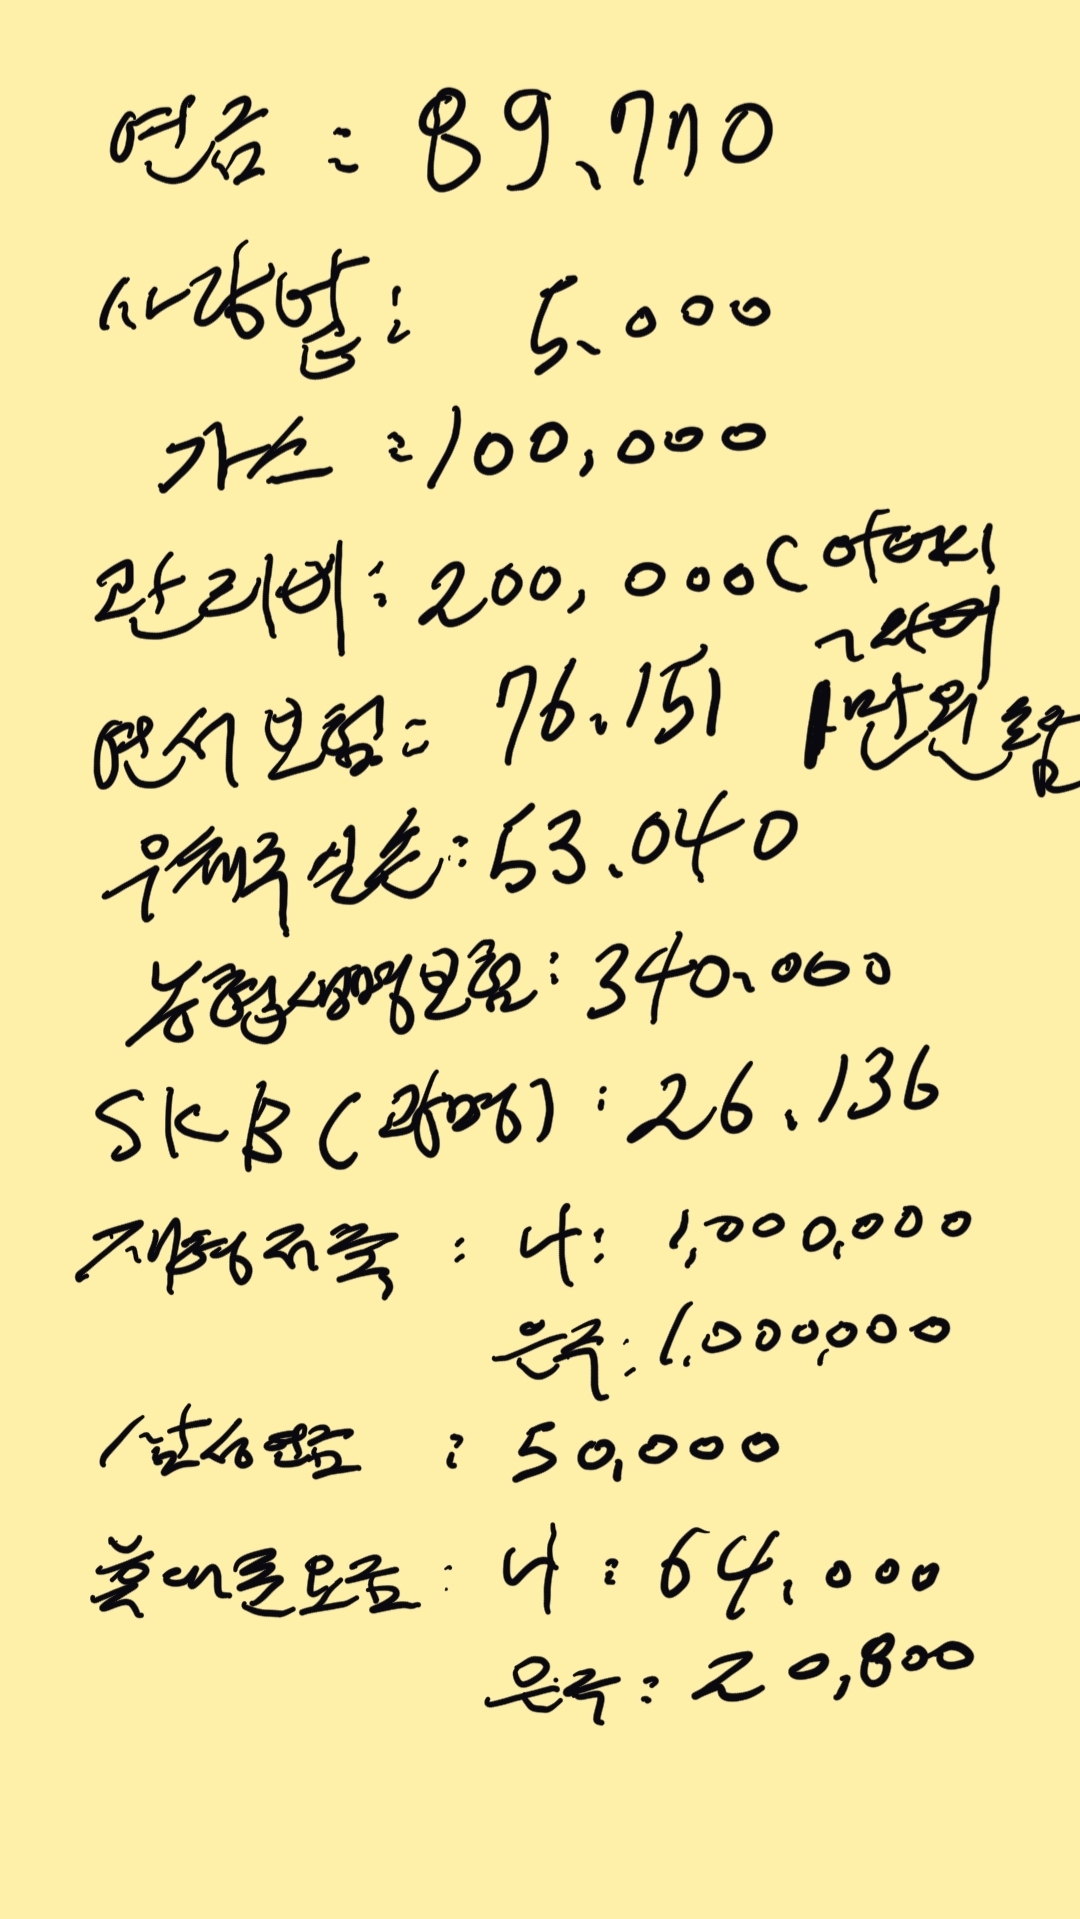 연금 : 89,770
사랑밭 : 5,000
가스 : 100,000
관리비 : 200,000 (
1만원
연서 보험 : 76.151
우체국 실손 : 53.040
농협생명보험 : 340,000
SKB (광명) : 26.136
재형저축 : 나 : 1,000,000
은주 : 1,000,000
삼성연금 : 50,000
휴대폰요금 : 나 : 64,000
은주 : 20,800